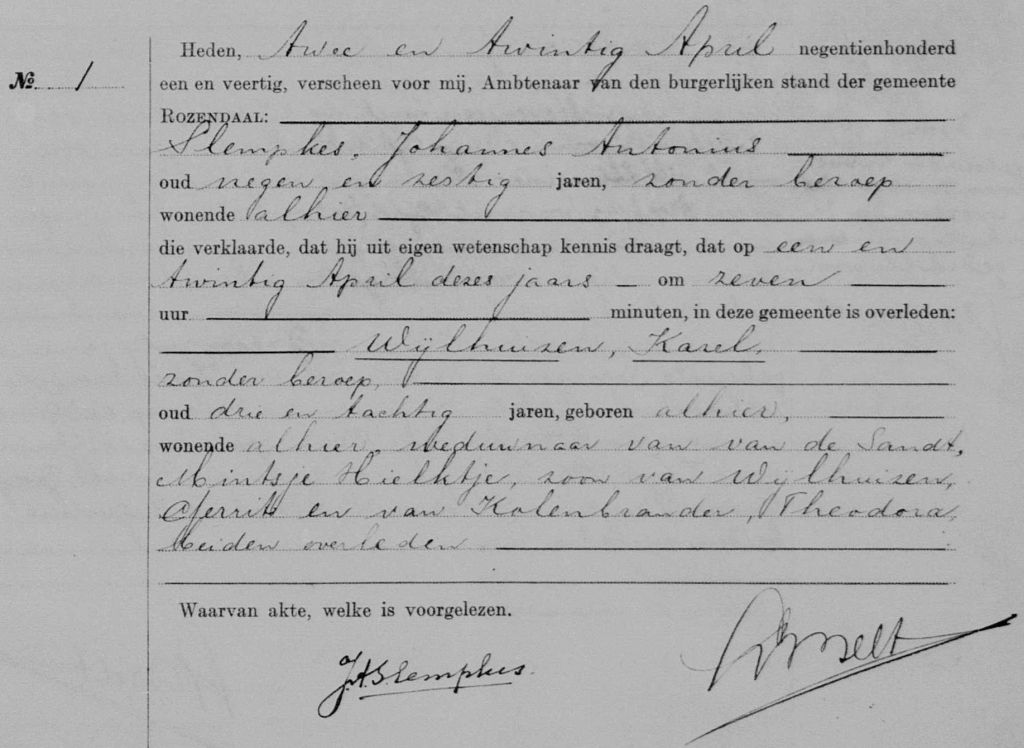 Heden, twee en twintig April negentienhonderd
№ 1
een en veertig, verscheen voor mij, Ambtenaar van den burgerlijken stand der gemeente
ROZENDAAL:
Slempkes, Johannes Antonius
oud negen en zestig jaren, zonder beroep
wonende alhier
die verklaarde, dat hij uit eigen wetenschap kennis draagt, dat op een en
twintig April dezes jaars om zeven
uur minuten, in deze gemeente is overleden:
Wijlhuizen, Karel,
zonder beroep,
oud drie en tachtig jaren, geboren alhier,
wonende alhier, weduwnaar van van de Sandt,
Mintsje Hielktje, zoon van Wijlhuizen,
Gerrit en van Kolenbrander, Theodora,
beiden overleden
Waarvan akte, welke is voorgelezen.
J.A. Slempkes.